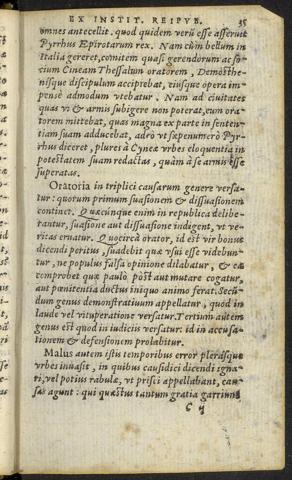 EX INSTIT. REIPVB. 35
omnes antecellit. quod quidem verū esse asseruit
Pyrrhus Epirotarum rex. Nam cùm bellum in
Italia gereret, comitem quasi gerendorum ac so
cium Cineam Thessalum oratorem, Demosthe-
nisque discipulum accipiebat, eiusque opera im-
pensè admodum vtebatur. Nam ad ciuitates
quas vi & armis subigere non poterat, eum ora-
torem mittebat, quas magna ex parte in senten-
tiam suam adducebat, adeò vt sæpenumerò Pyr-
rhus diceret, plures à Cynea vrbes eloquentia in
potestatem suam redactas, quàm à se armis esse
superatas.
Oratoria in triplici causarum genere versa-
tur: quorum primum suasionem & dissuasionem
continet. Quæcunque enim in republica delibe-
rantur, suasione aut dissuasione indigent, vt ve-
ritas eruatur. Quocirca orator, id est vir bonus
dicendi peritus, suadebit quæ vsui esse videbun-
tur, ne populus falsa opinione dilabatur, & ea
comprobet quæ paulò pòst aut mutare cogatur,
aut pœnitentia ductus iniquo animo ferat. Secū-
dum genus demonstratiuum appellatur, quod in
laude vel vituperatione versatur. Tertium autem
genus est quod in iudiciis versatur: id in accusa-
tionem & defensionem prolabitur.
Malus autem istis temporibus error plerasque
vrbes inuasit, in quibus causidici dicendi igna-
ri, vel potius rabulæ, vt prisci appellabant, cau-
sas agunt: qui quæstus tantum gratia garriunt